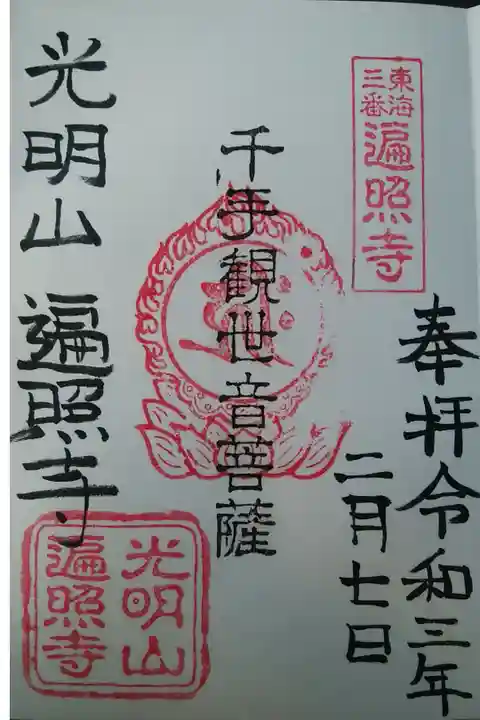 東海
三番
遍照寺
奉拝令和三年
二月七日
千手観世音菩薩
光明山遍照寺
光明山
遍照寺